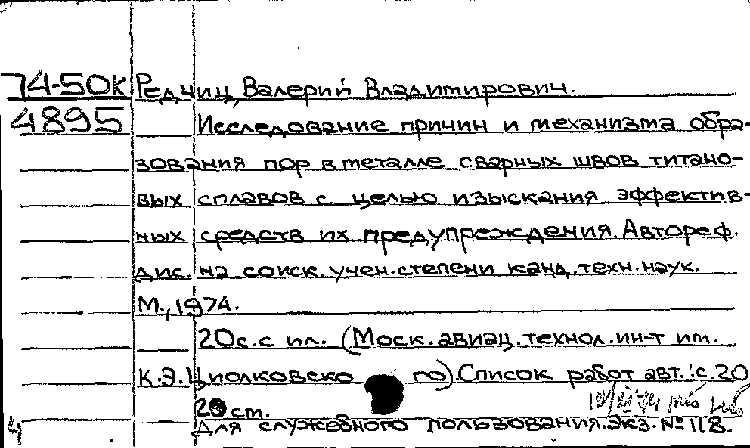 74-50к Редчиц, Валерий Владимирович.
4895 Исследование причин и механизма обра-
зования пор в металле сварных швов титано-
вых сплавов с целью изыскания эффектив-
ных средств их предупреждения. Автореф.
дис. на соиск. учен. степени канд. техн. наук.
М., 1974.
20с. с ил. (Моск. авиац. технол. ин-т им.
К.Э. Циолковско го) Список работ авт.: с. 20
20 ст.
Для служебного пользования. Экз. № 118.